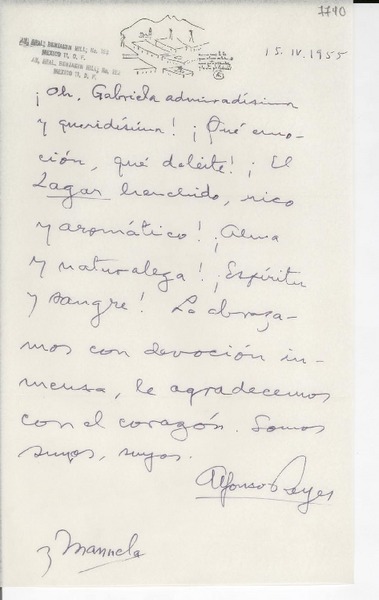 7790
AV. GRAL. BENJAMIN HILL, No. 122
MEXICO 11, D. F.
AV. GRAL. BENJAMIN HILL, No. 122
MEXICO 11, D. F.
15. IV. 1955
¡Oh, Gabriela admiradísima
y queridísima! ¡Qué emo-
ción, qué deleite! ¡El
Lagar henchido, rico
y aromático! ¡Alma
y naturaleza! ¡Espíritu
y sangre! La abraza-
mos con devoción in-
mensa, le agradecemos
con el corazón. Somos
suyos, suyos.
Alfonso Reyes
y Manuela